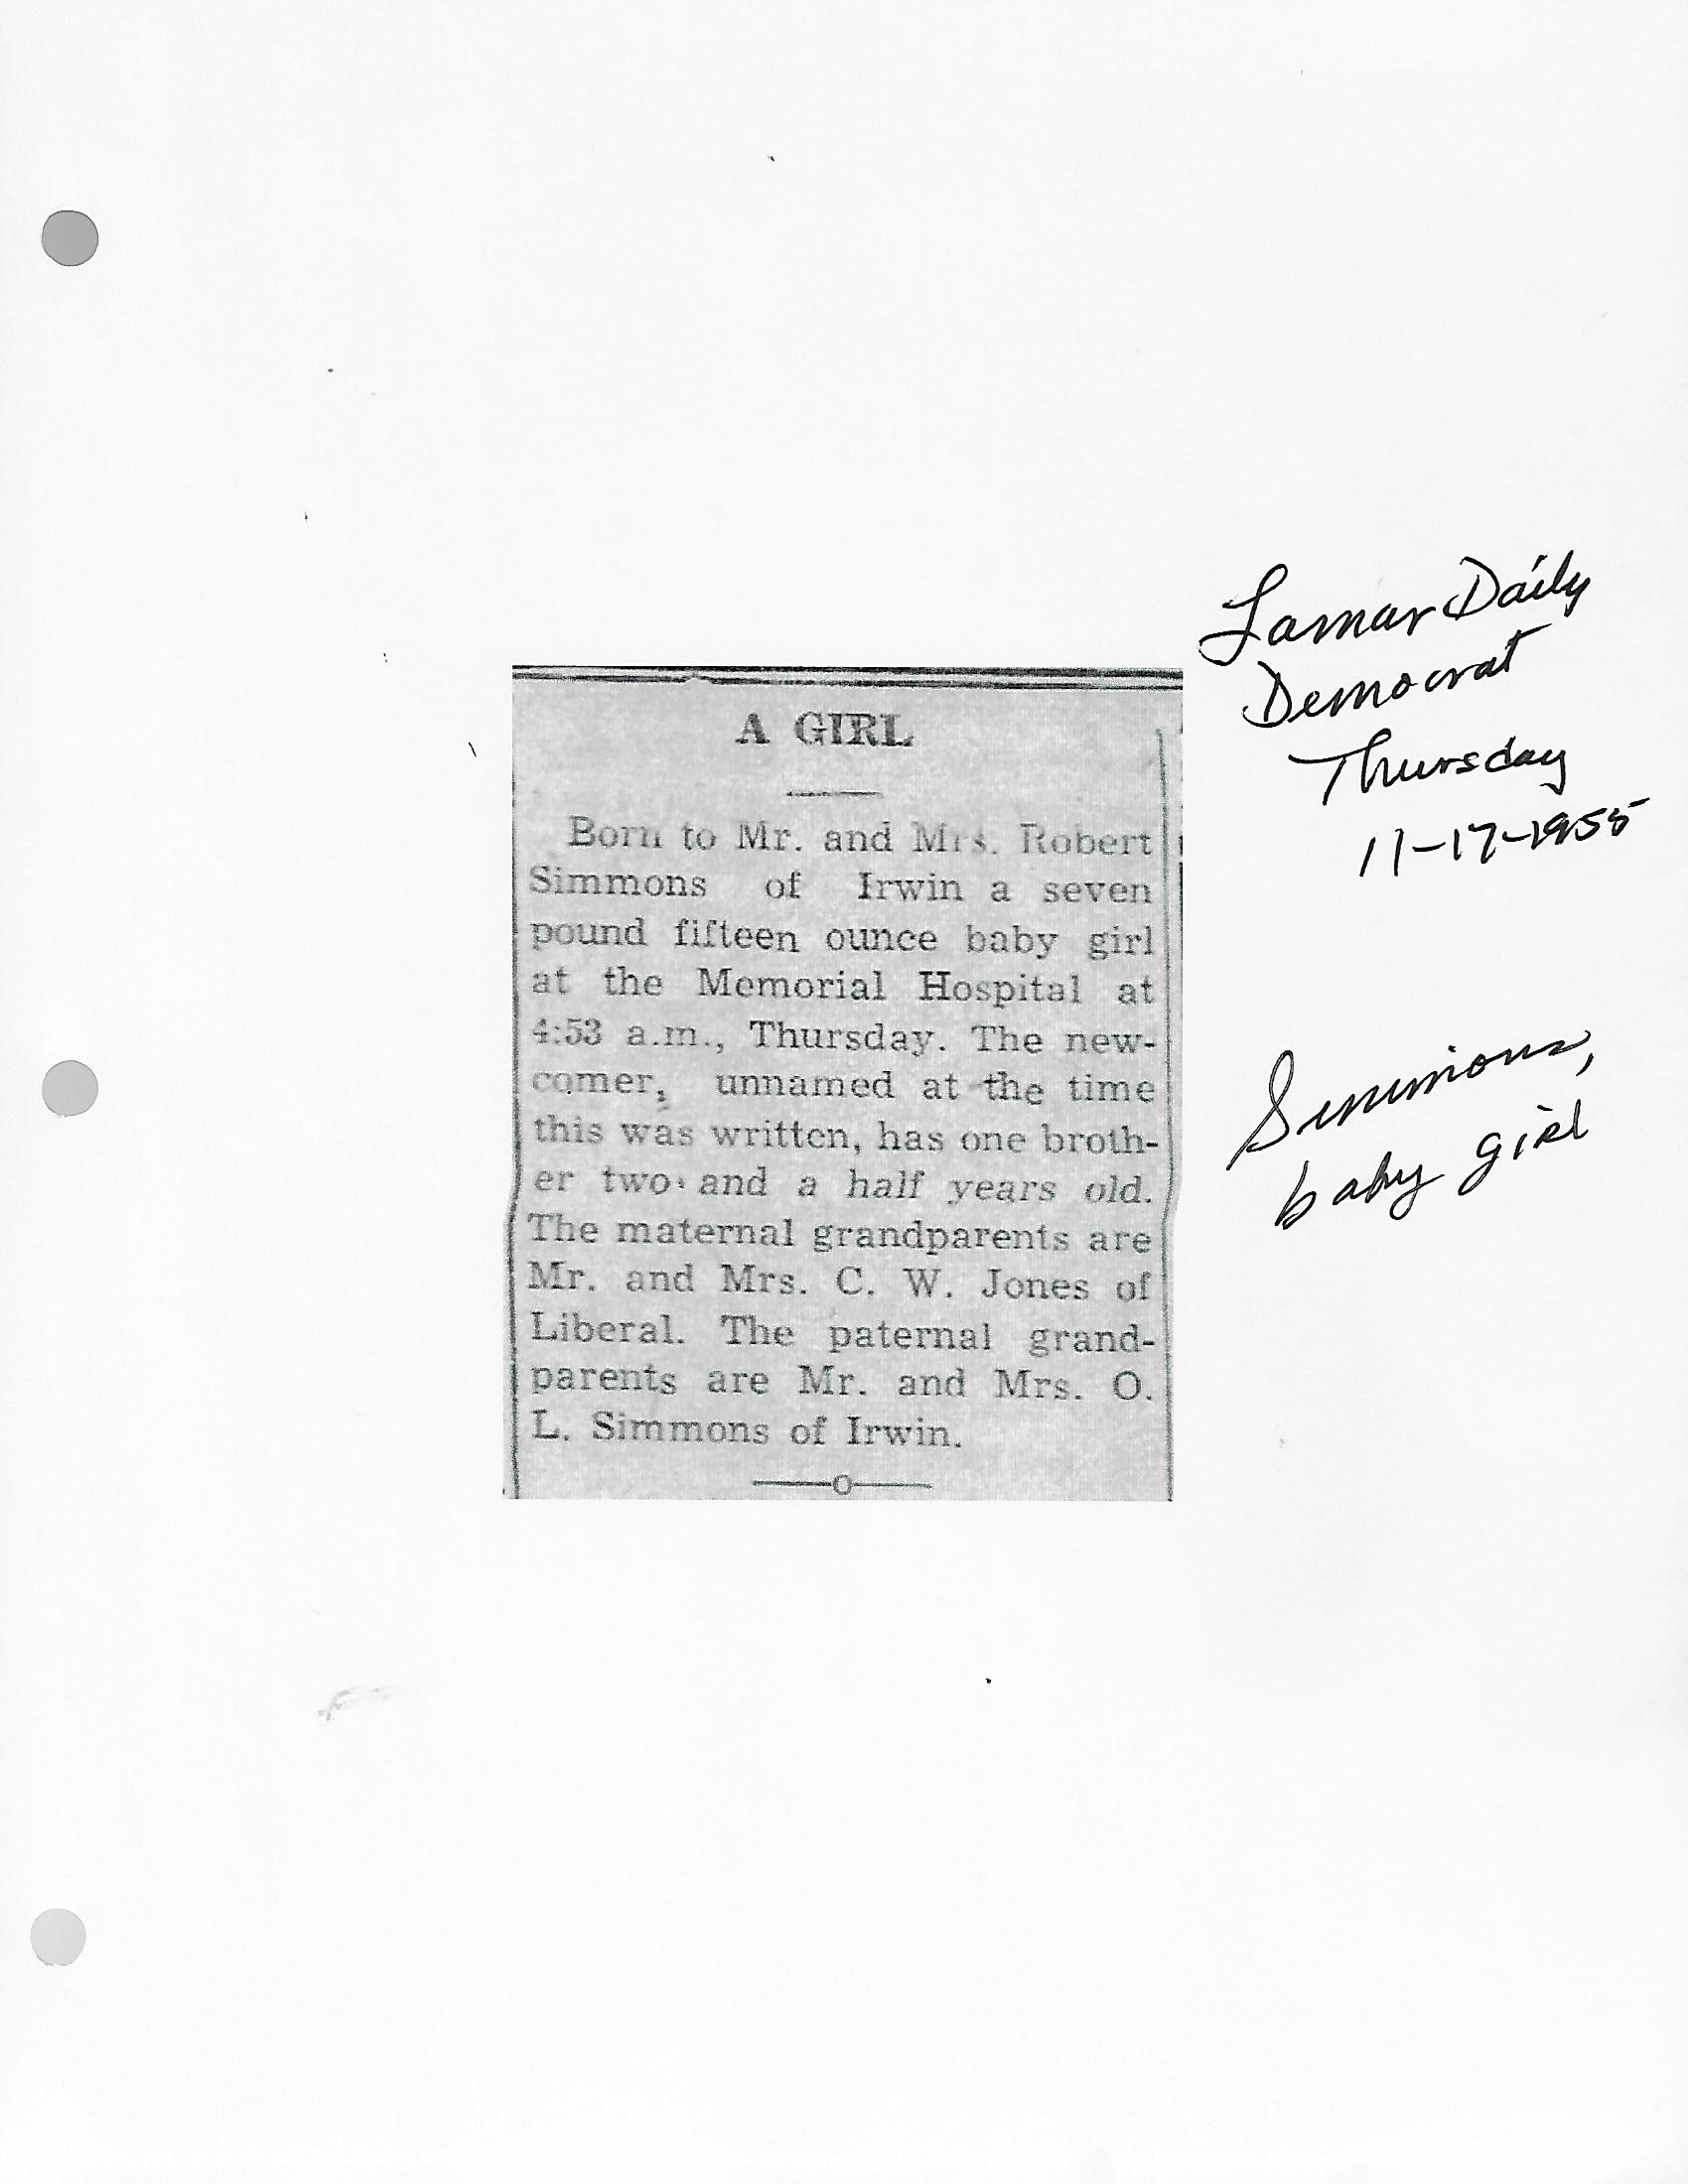 Lamar Daily
Democrat
Thursday
11-17-1955
A GIRL
Born to Mr. and Mrs. Robert
Simmons of Irwin a seven
pound fifteen ounce baby girl
at the Memorial Hospital at
4:53 a.m., Thursday. The new-
comer, unnamed at the time
this was written, has one broth-
er two and a half years old.
The maternal grandparents are
Mr. and Mrs. C. W. Jones of
Liberal. The paternal grand-
parents are Mr. and Mrs. O.
L. Simmons of Irwin.
Simmons,
baby girl